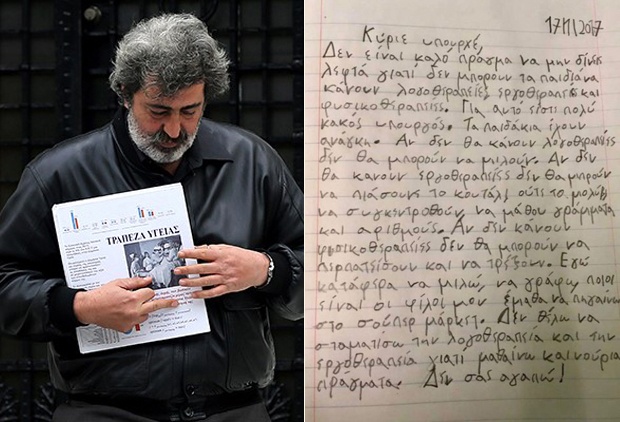 ΤΡΑΠΕΖΑ ΥΓΕΙΑΣ
17/1/2017
Κύριε υπουρχέ,
Δεν είναι καλό πράγμα να μην δίνεις
λεφτά γιατί δεν μπορούν τα παιδιά να
κάνουν λογοθεραπείες, εργοθεραπείες και
φυσικοθεραπείες. Για αυτό είστι πολύ
κακός υπουργός. Τα παιδάκια έχουν
ανάγκη. Αν δεν θα κάνουν λογοθεραπείες
δεν θα μπορούν να μιλούν. Αν δεν
θα κάνουν εργοθεραπείες δεν θα μπορούν
να πιάσουνε το κουτάλι, ούτε το μολύβι
να συγκεντρωθούν, να μάθου γράμματα
και αριθμούς. Αν δεν κάνουν
φυσικοθεραπείες δεν θα μπορούν να
περπατήσουν και να τρέξουν. Εγώ
κατάφερα να μιλώ, να γράφω, ποιοί
είναι οι φίλοι μου έμαθα να πηγαίνω
στο σούπερ μάρκετ. Δεν θέλω να
σταματίσω την λογοθεραπεία και την
εργοθεραπεία γιατι μαθαίνω καινούρια
πράγματα. Δεν σας αγαπώ!